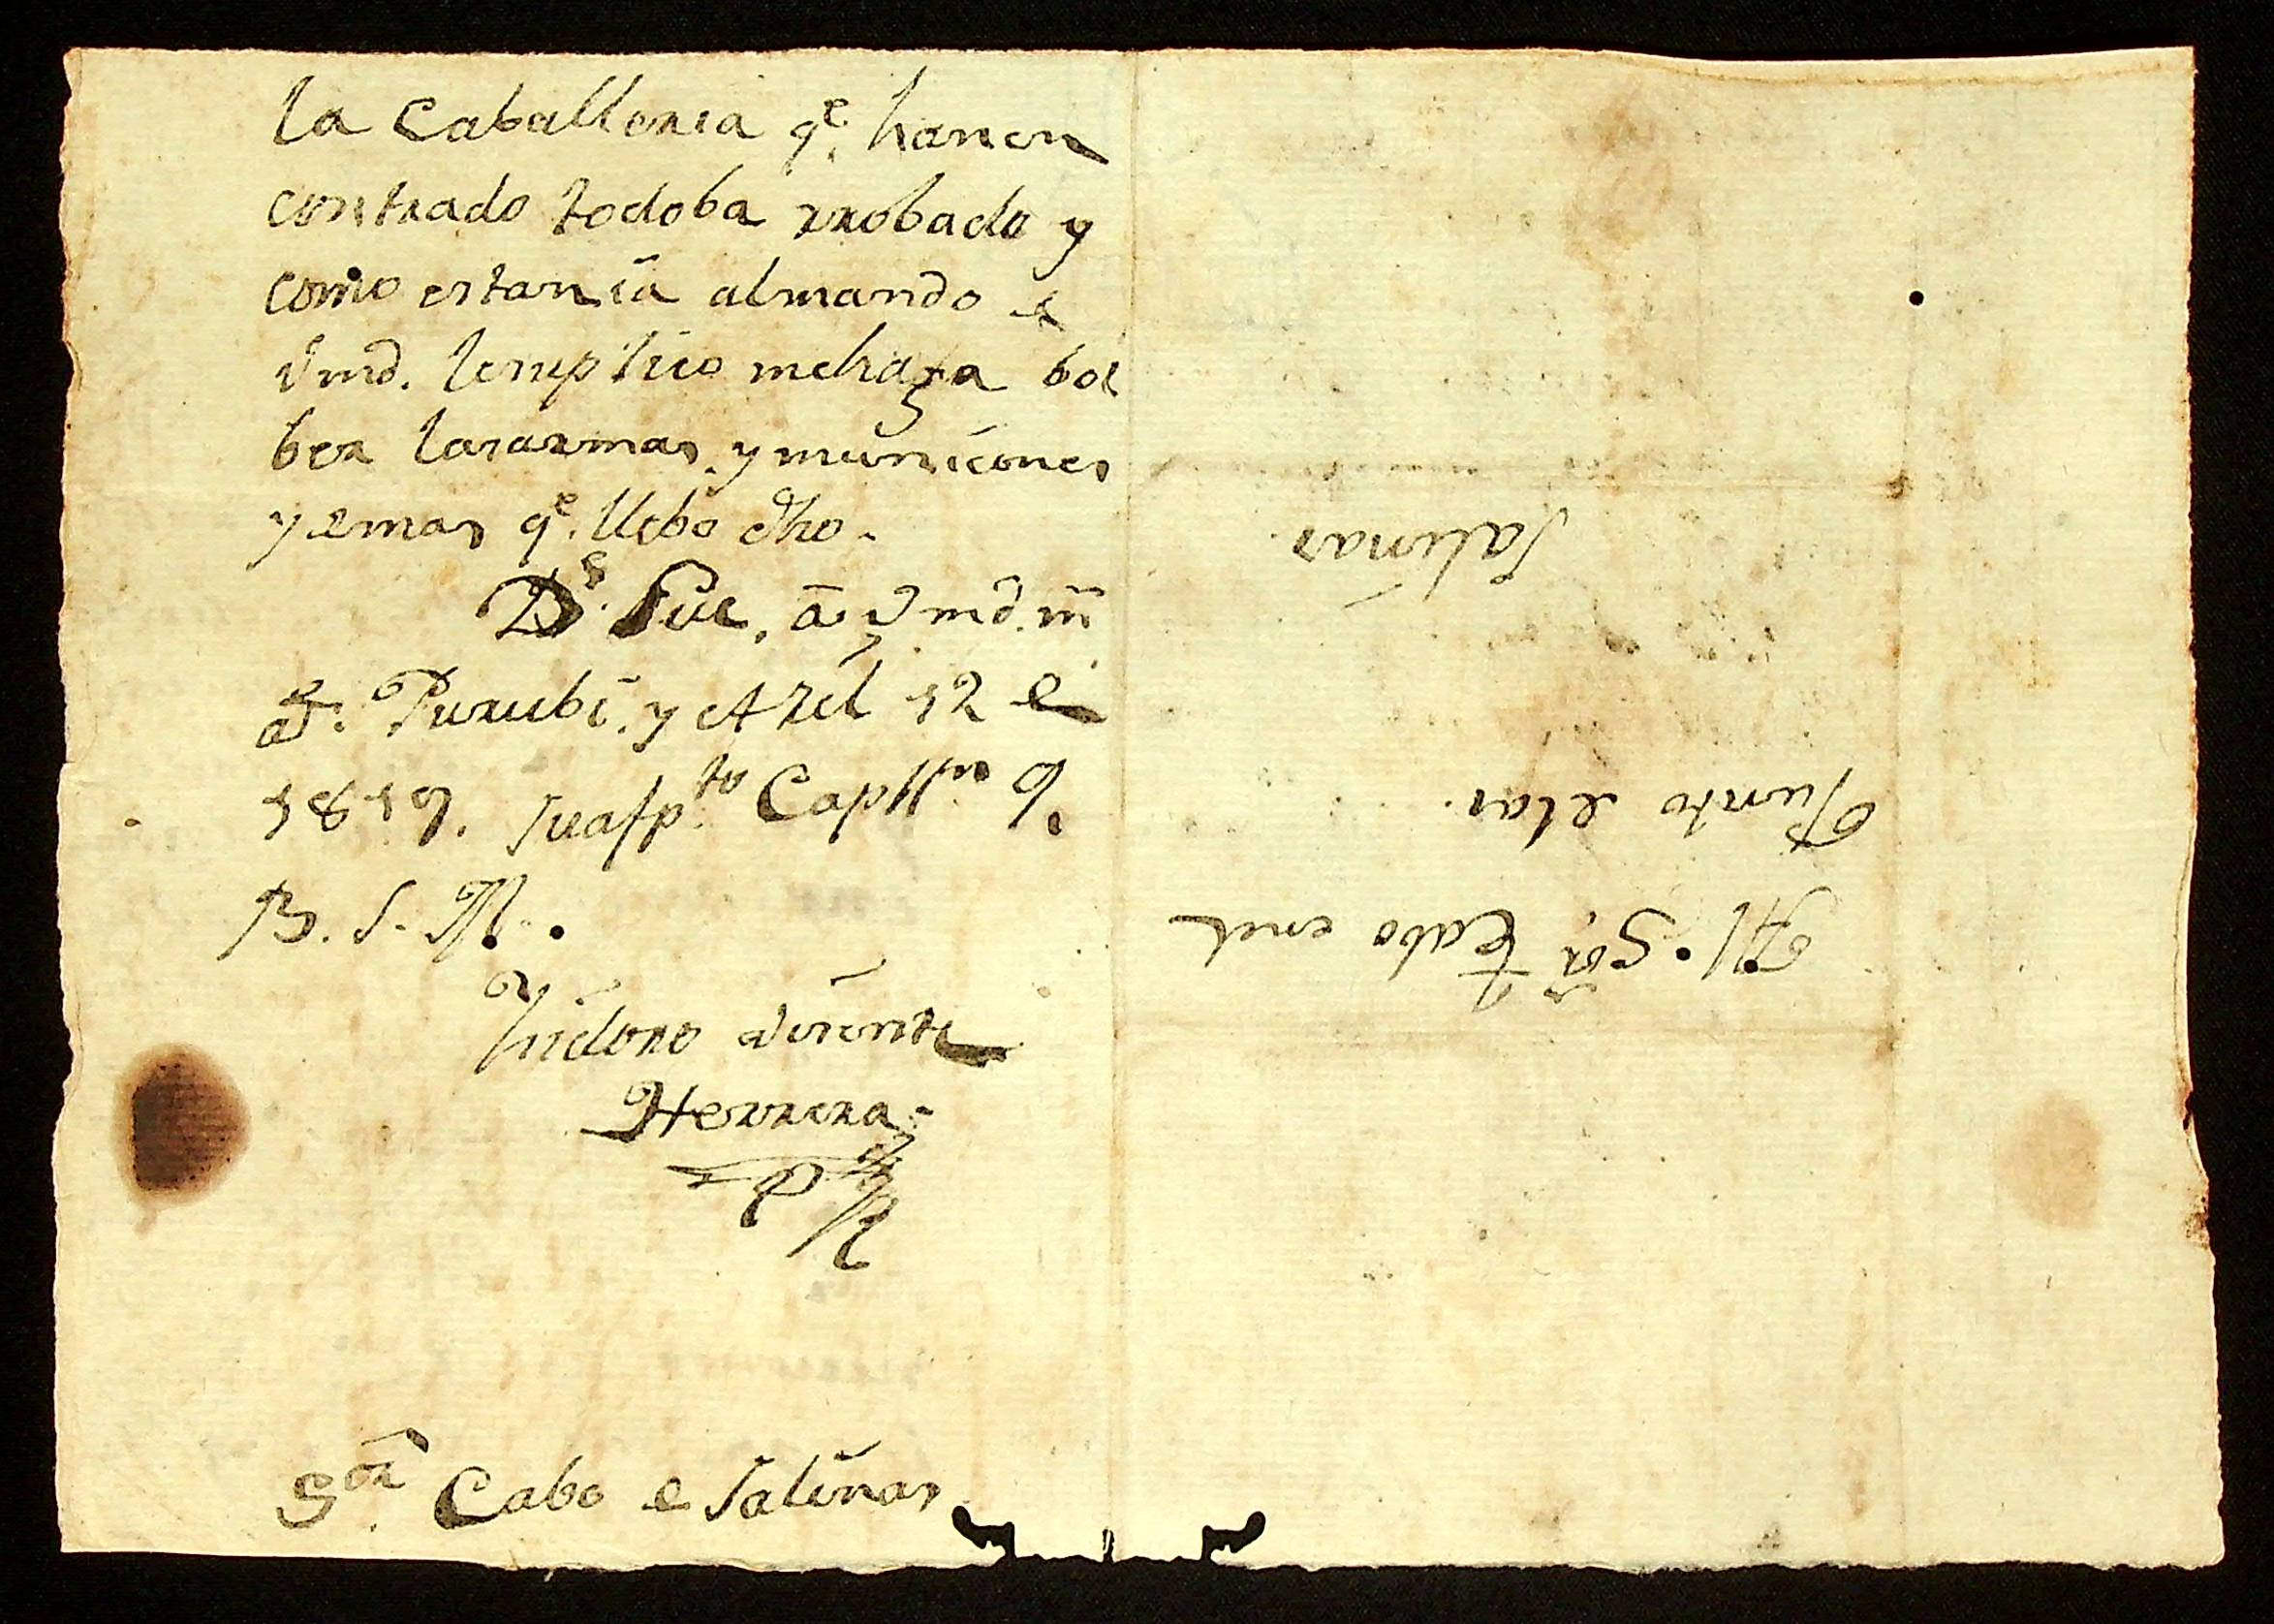 la Caballeria qe. hanen
contrado todoba rrobado y
como estaria almando e
Vmd. lesuplico mehaga bol
ber lasarmas y municones
y emas qe. llebo dho.
Ds. Gue. a Vmd. m
as. Purubi. y Abril 12 e
1819. Su afpto Caplln Q.
B. S. M.
Ysidoro Visente
Herrera
Sor. Cabo e Salinas
Al. Sor. Cabo enel
Punto elas
Salinas